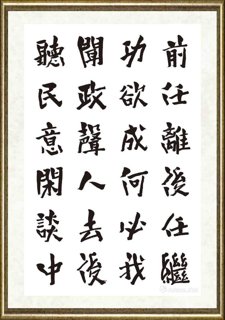 前任離後任繼
功欲成何必我
聞政聲人去後
聽民意閑談中